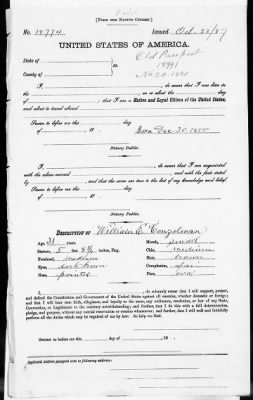 [FORM FOR NATIVE CITIZEN.]
No. 14774 Issued Oct. 22/87
UNITED STATES OF AMERICA.
State of
Old Passport
County of
ss.
18991
No 20. 1880
I, , do swear that I was born in
the day of
; that I am a Native and Loyal Citizen of the United States,
and about to travel abroad
Sworn to before me, this day
of , 18 .
Born Dec 30, 1855
Notary Public.
I, , do swear that I am acquainted
with the above-named , and with the facts stated
by , and that the same are true to the best of my knowledge and belief.
Sworn to before me, this day
of , 18 .
Notary Public.
DESCRIPTION OF William E Conzelman
Age, 31 years. Mouth, small
Stature, 5 feet, inches, Eng. Chin, medium
Forehead, medium Hair, brown
Eyes, dark brown Complexion, fair
Nose, pointed Face, oval
I, , do solemnly swear that I will support, protect,
and defend the Constitution and Government of the United States against all enemies, whether domestic or foreign;
and that I will bear true faith, allegiance, and loyalty to the same, any ordinance, resolution, or law of any State,
Convention, or Legislature to the contrary notwithstanding; and further, that I do this with a full determination,
pledge, and purpose, without any mental reservation or evasion whatsoever; and further, that I will well and faithfully
perform all the duties which may be required of me by law. So help me God.
Sworn to before me, this day of , 18 .
Notary Public.
Applicant desires passport sent to following address: